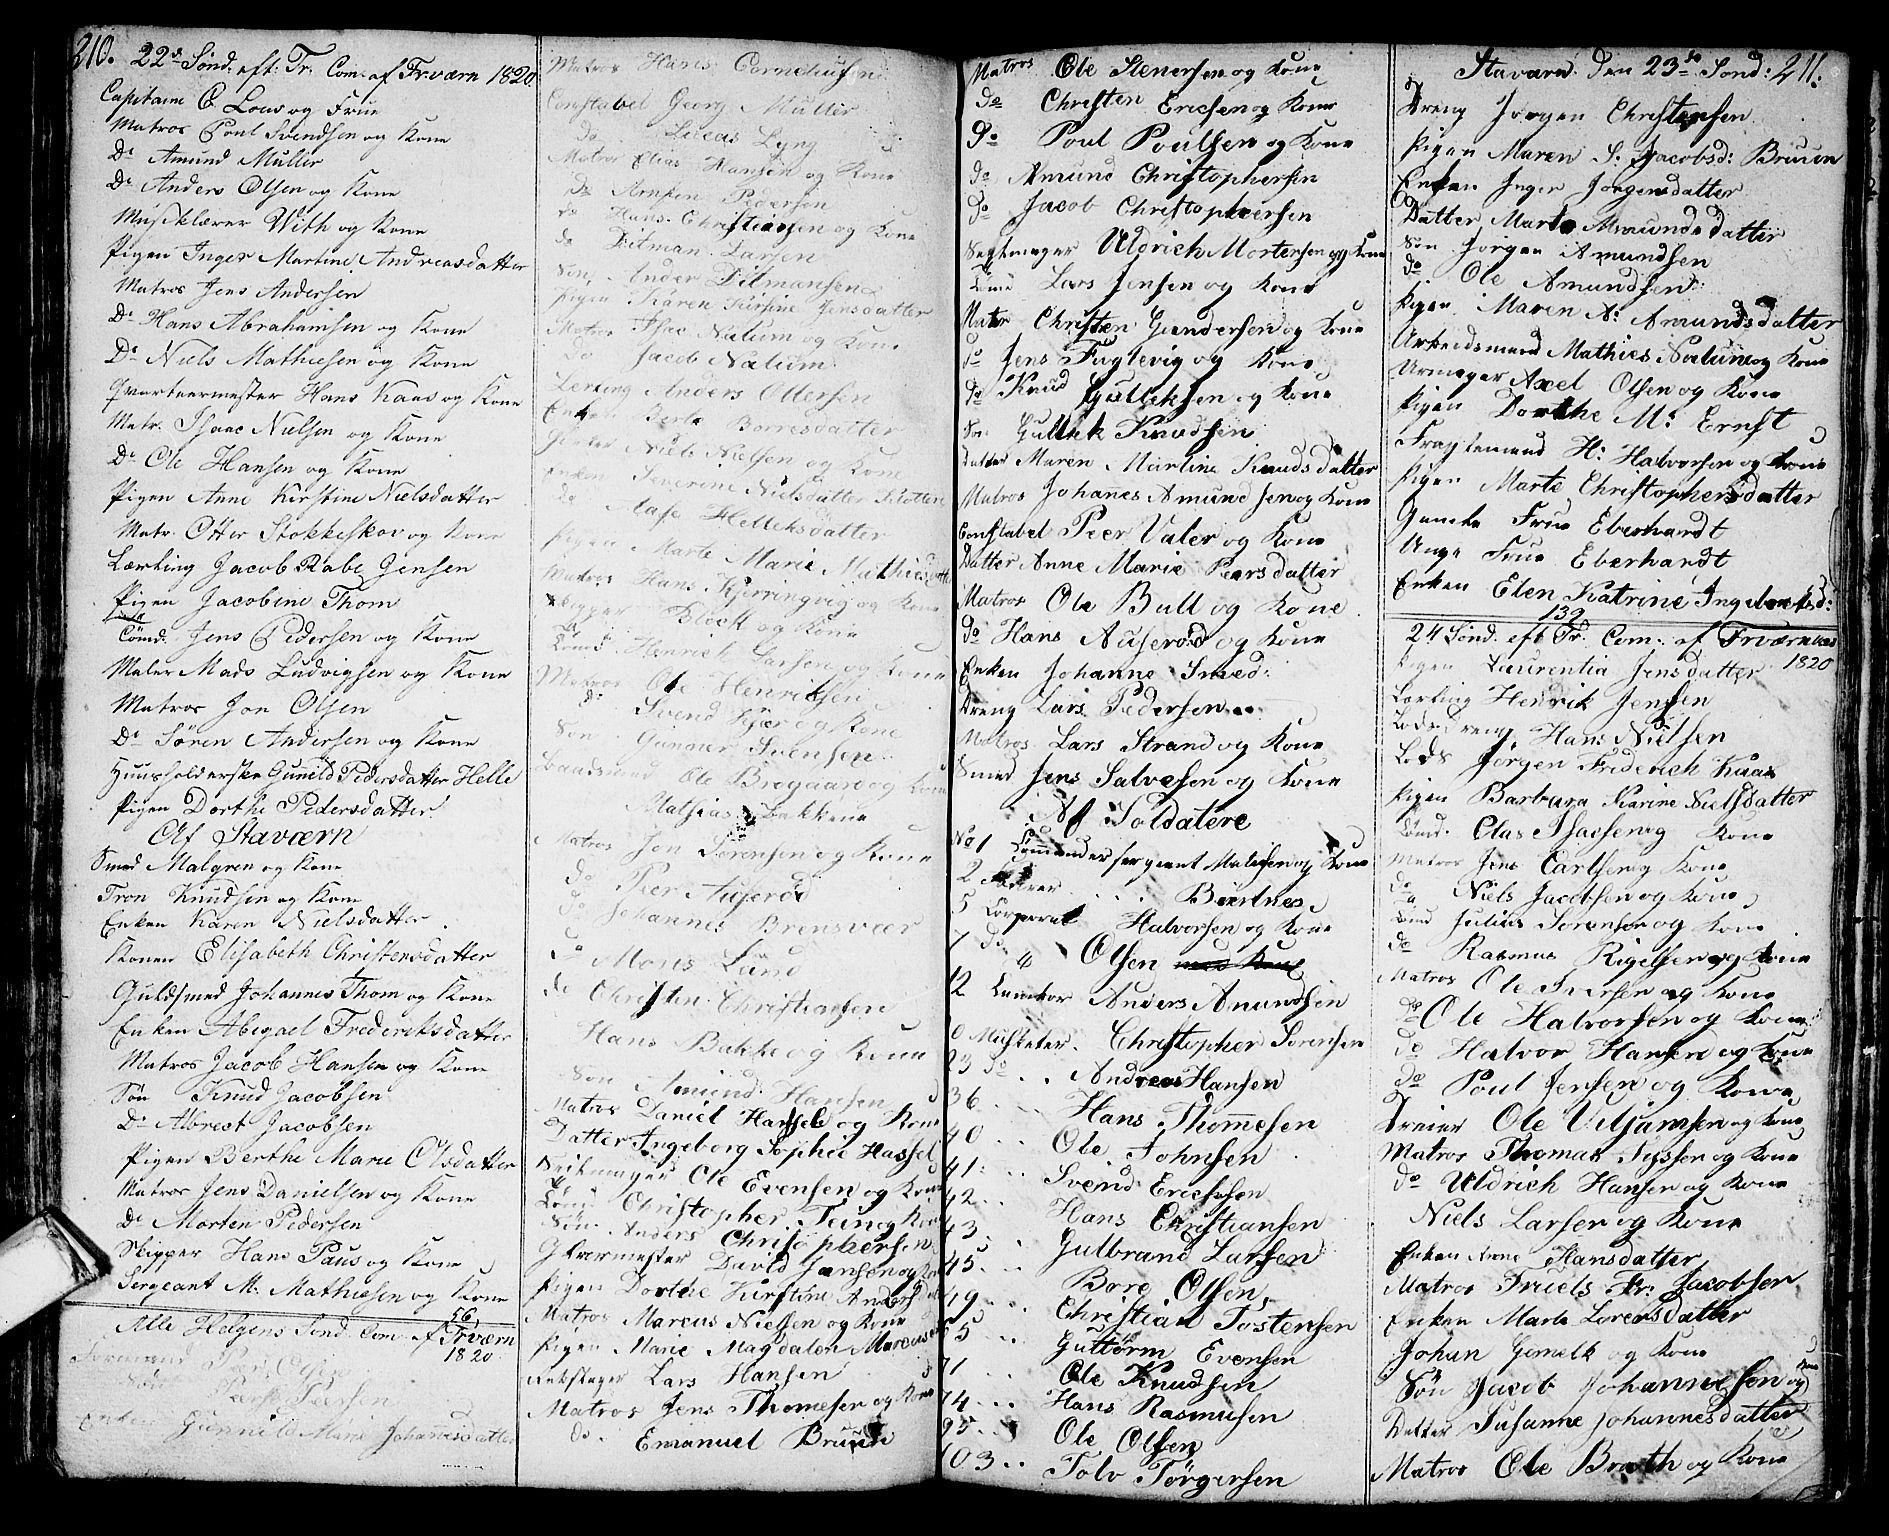 210.
22d Sønd: eft: Tr: Com: af Fr.værn 1820
Capitaine C Lous og Frue
Matros Poul Svendsen og Kone
Do Amund Müller
Do Anders Olsen og Kone
Musiklærer With og Kone
Pigen Inger Martine Andreasdatter
Matros Jens Andersen
Do Hans Abrahamsen og Kone
Do Niels Mathiesen og Kone
Qvarteermester Hans Kaas og Kone
Matr. Isaac Nielsen og Kone
Do Ole Hansen og Kone
Pigen Anne Kirstine Nielsdatter
Matr. Otter Stokkeskov og Kone
Lærling Jacob Rabe Jensen
Pigen Jacobine Thom
Tømd. Jens Pedersen og Kone
Maler Mads Ludvigsen og Kone
Matros Jon Olsen
Do Sören Andersen og Kone
Huusholderske Gunild Pedersdatter Helle
Pigen Dorthe Pedersdatter
Af Staværn
Smed Malgren og Kone
Tron Knudsen og Kone
Enken Karen Nielsdatter
Konen Elisabeth Christensdatter
Guldsmed Johannes Thom og Kone
Enken Abigael Frederiksdatter
Matros Jacob Hansen og Kone
Søn Knud Jacobsen
Do Albrect Jacobsen
Pigen Berthe Marie Olsdatter
Matros Jens Danielsen og Kone
Do Morten Pedersen
Skipper Hans Paus og Kone
Sergeant M. Mathiesen og Kone
56
Alle Helgens Sond. Com: af Fr.værn
1820
Peer Olsen
Peersen
Enken Gunnild Marie Johannesdatter
Matros Hans Corneliusen
Constabel Georg Müller
do Lucas Lyng
Matros Elias Hansen og Kone
do Arnsen Pedersen
do Hans Christiansen og Kone
do Ditman Larsen
Søn Ander Ditmansen
Pigen Karen Kirstine Jensdatter
Matros Isac Nalum og Kone
do Jacob Nalum
Lerling Anders Ottersen
Enken Berte Borresdatter
Niels Nielsen og Kone
Enken Severine Nielsdatter
do Aase Helleksdatter
Pigen Marte Marie Mathiesdatter
Matros Hans Kjerringvig og Kone
Skipper Block og Kone
Tømd Henrich Larsen og Kone
Matros Ole Henriksen
do Svend Kjær og Kone
Søn Gunner Svensen
Baadsmand Ole Bregaard og Kone
Mathias Bakkene
Matros Jon Sörensen og Kone
do Peer Auserød
do Johannes Brensveer
do Mons Lund
do Christen Christiansen
Hans Bakke og Kone
Søn Amund Hansen
Matros Daniel Hassel og Kone
Datter Ingeborg Sophie Hassel
Seilmager Ole Evensen og Kone
Tømd Christopher Tein og Kone
Søn. Anders Christophersen
Glarmester David Jansen og Kone
Pigen Dorthe Kirstine Anders
Matros Marcus Nielsen og Kone
Pigen Marie Magdalen Marcus
Rebslager Lars Hansen
Matros Jens Thomesen og Kone
do. Emanuel Bruun
Matros Ole Stenersen og Kone
do Christen Ericsen og Kone
do Poul Poulsen og Kone
do Amund Christophersen
do Jacob Christophersen
Seglmager Uldrich Mortensen og Kone
Tømd Lars Jensen og Kone
Matr Christen Gundersen og Kone
do Jens Fuglevig og Kone
do Knud Gulleksen og Kone
Søn Gullek Knudsen
Datter Maren Martine Knudsdatter
Matros Johanes Amundsen og Kone
Constabel Peer Valer og Kone
Datter Anne Marie Peersdatter
Matros Ole Bull og Kone
do Hans Auserød og Kone
Enken Johanne Smed:
Dreng Lars Pedersen
Matros Lars Strand og Kone
Smed Jens Salvesen og Kone
Af Soldatere
No 1 Commander sergeant Madsen og Kone
2 Børtnes
5 Corporal Halvorsen og Kone
7 do. Olsen med Kone
12 Tambor Anders Amundsen
0 Musketer. Christopher Sörensen
23 do Andreas Hansen
36 Hans Thommesen
40 Ole Johnsen
41 Svend Ericksen
42 Hans Christiansen
43 Gulbrand Larsen
45 Bore Olsen
49 Christian Tostensen
55 Guttorm Evensen
71 Ole Knudsen
74 Hans Rasmusen
95 Ole Olsen
103 Tolv Törgersen
Staværn: Den 23de Sond: 211.
Dreng Jørgen Christophsen
Pigen Maren S. Jacobsd: Bruun
Enken Inger Jorgensdatter
Datter Marte Amundsdatter
Søn Jørgen Amundsen
do Ole Amundsen
Pigen Maren A: Amundsdatter
Arbeidsmand Mathies Nalum og Kone
Urmager Axel Olsen og Kone
Pigen Dorthe M. Ernst
Fragtemand H: Halvorsen og Kone
Pigen Marte Christophersdatter
Gamle Frue Eberhardt
Unge Frue Eberhardt
Enken Elen Katrine Ingebretsd:
139
24 Sønd: eft Tr. Com: af Fr.værn
1820
Pigen Laurentia Jensdatter
Lærling Henrik Jensen
Lodsdreng Hans Nielsen
Lods Jörgen Friderich Kaas
Pigen Barbara Karine Nielsdatter
Tømd. Clas Isacsen og Kone
Matros Jens Carlsen og Kone
do Niels Jacobsen og Kone
Tømd Julius Sörensen og Kone
do Rasmus Rigelsen og Kone
Matros Ole Iversen og Kone
do Ole Halvorsen og Kone
do Halvor Hansen og Kone
do Poul Jensen og Kone
Dreier Ole Viljumsen og Kone
Matros Thomas Nissen og Kone
do Uldrich Hansen og Kone
Niels Larsen og Kone
Enken Anne Hansdatter
Matros Friels Fr: Jacobsen
Enken Marte Lorensdatter
Johan Gemelk og Kone
Søn Jacob Johannesen og Kone
Datter Susanne Johannesdatter
Matros Ole Braath og Kone